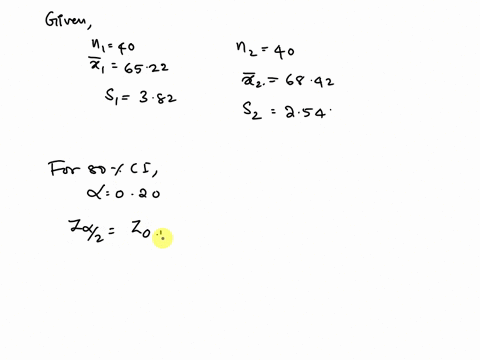 Given,
n₁ = 40
x̄₁ = 65.22
S₁ = 3.82
n₂ = 40
x̄₂ = 68.42
S₂ = 2.54.
For 80% CI,
α = 0.20
Zα/2 = Z0.